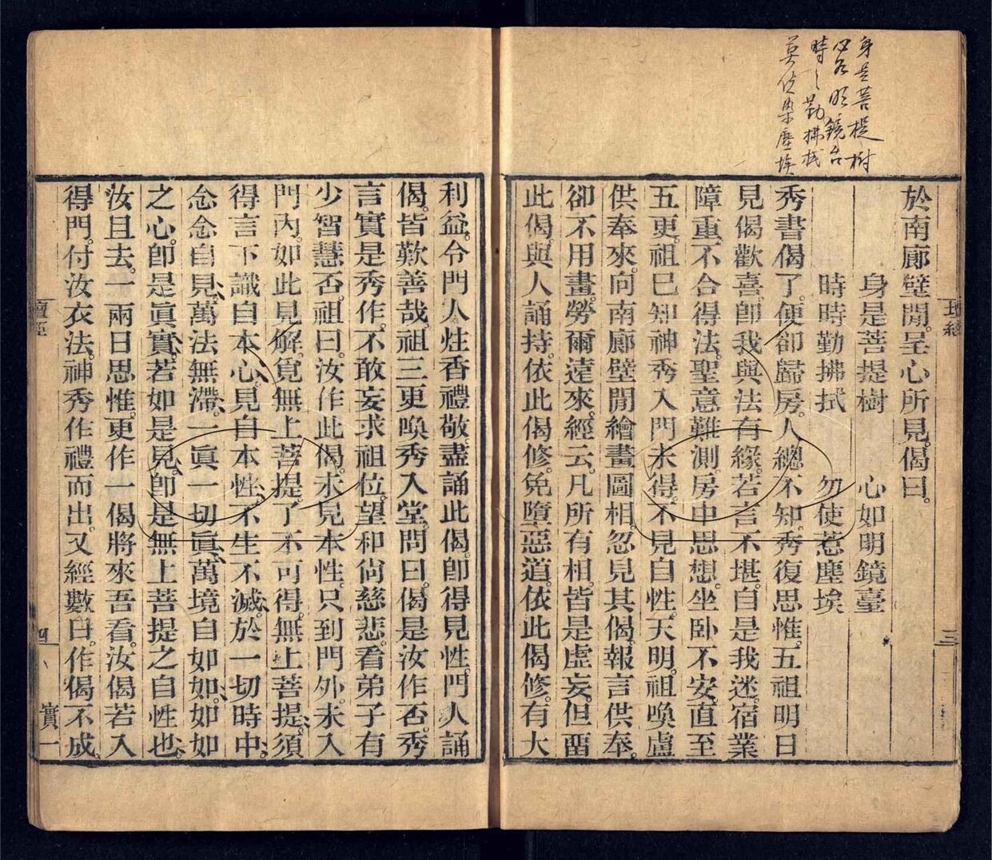 身是菩提樹
心如明鏡台
時々勤拂拭
莫使染塵埃
於南廊壁閒。呈心所見。偈曰。
身是菩提樹　心如明鏡臺
時時勤拂拭　勿使惹塵埃
秀書偈了。便卻歸房。人總不知。秀復思惟。五祖明日
見偈歡喜。卽我與法有緣。若言不堪。自是我迷。宿業
障重。不合得法。聖意難測。房中思想。坐臥不安。直至
五更。祖已知神秀入門未得。不見自性。天明。祖喚盧
供奉來。向南廊壁閒繪畫圖相。忽見其偈。報言供奉。
卻不用畫。勞爾遠來。經云。凡所有相。皆是虛妄。但留
此偈。與人誦持。依此偈修。免墮惡道。依此偈修。有大
壇經
三
利益。令門人炷香禮敬。盡誦此偈。卽得見性。門人誦
偈。皆歎善哉。祖三更喚秀入堂。問曰。偈是汝作否。秀
言實是秀作。不敢妄求祖位。望和尙慈悲。看弟子有
少智慧否。祖曰。汝作此偈。未見本性。只到門外。未入
門內。如此見解。覓無上菩提。了不可得。無上菩提。須
得言下識自本心。見自本性。不生不滅。於一切時中。
念念自見。萬法無滯。一眞一切眞。萬境自如如。如如
之心。卽是眞實。若如是見。卽是無上菩提之自性也。
汝且去。一兩日思惟。更作一偈。將來吾看。汝偈若入
得門。付汝衣法。神秀作禮而出。又經數日。作偈不成。
壇經
四
實一